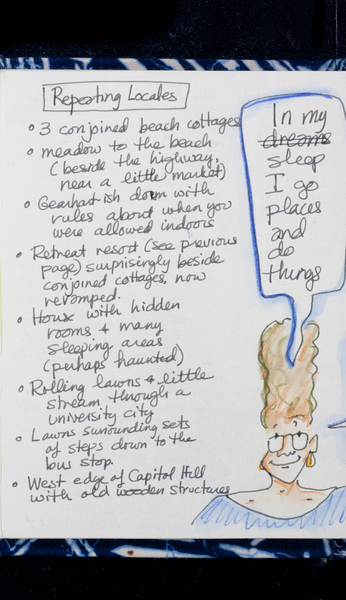 Repeating Locales
• 3 conjoined beach cottages
• meadow to the beach
(beside the highway,
near a little market)
• Gearhart ish dorm with
rules about when you
were allowed indoors
• Retreat resort (see previous
page) surprisingly beside
conjoined cottages, now
revamped.
• House with hidden
rooms & many
sleeping areas
(perhaps haunted)
• Rolling lawns & little
stream through a
university city
• Lawns surrounding sets
of steps down to the
bus stop
• West edge of Capitol Hill
with old wooden structures
In my
dreams
sleep
I go
places
and
do
things